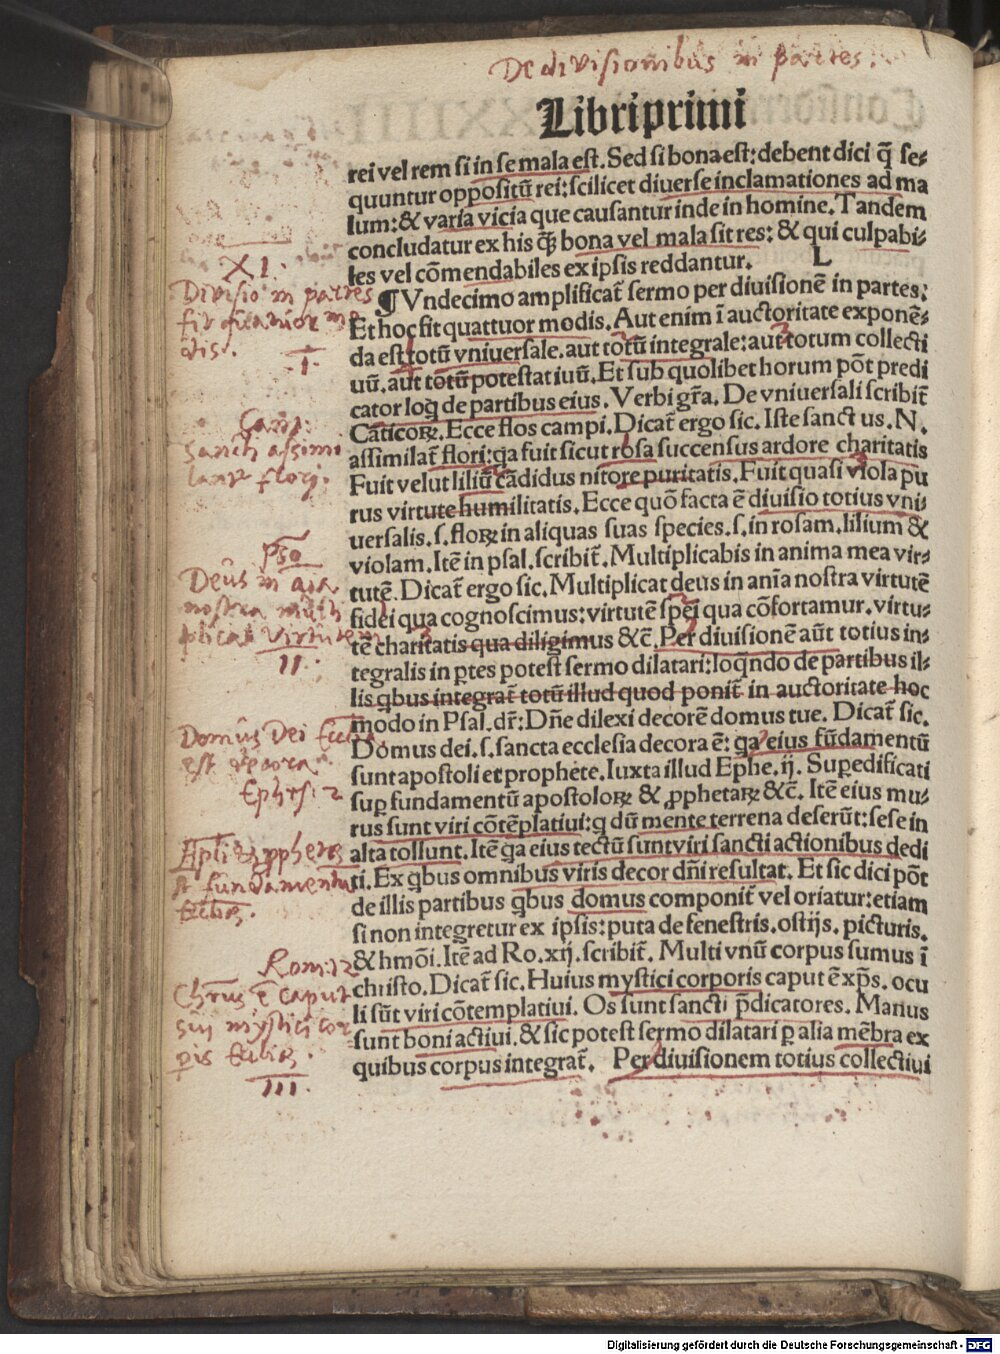 De divisionibus in partes.
Libri primi
rei vel rem si in se mala est. Sed si bona est: debent dici q̃ se⸗
quuntur oppositũ rei: scilicet diuerse inclamationes ad ma
lum: & varia vicia que causantur inde in homine. Tandem
concludatur ex his q̃ꝫ bona vel mala sit res: & qui culpabi⸗
les vel cõmendabiles ex ipsis reddantur.
L
¶ Vndecimo amplificat̃ sermo per diuisionẽ in partes:
Et hoc fit quattuor modis. Aut enim ĩ auctoritate exponẽ⸗
da est totũ vniuersale. aut totũ integrale: aut totum collecti
uũ. aut totũ potestatiuũ. Et sub quolibet horum põt predi
cator loq̃ de partibus eius. Verbi gr̃a. De vniuersali scribit̃
Cãticoꝝ. Ecce flos campi. Dicat̃ ergo sic. Iste sanctus. N.
assimilat̃ flori: q̃a fuit sicut rosa succensus ardore charitatis
Fuit velut liliũ cãdidus nitore puritatis. Fuit quasi viola pu
rus virtute humilitatis. Ecce quõ facta ẽ diuisio totius vni⸗
uersalis. s. floꝝ in aliquas suas species. s. in rosam. lilium &
violam. Itẽ in psal. scribit̃. Multiplicabis in anima mea vir⸗
tutẽ. Dicat̃ ergo sic. Multiplicat deus in anĩa nostra virtutẽ
fidei qua cognoscimus: virtutẽ spẽi qua cõfortamur. virtu⸗
tẽ charitatis qua diligimus &c̃. Per diuisionẽ aũt totius in⸗
tegralis in ꝑtes potest sermo dilatari: loq̃ndo de partibus il⸗
lis q̃bus integrat̃ totũ illud quod ponit̃ in auctoritate hoc
modo in Psal. dr̃: Dñe dilexi decorẽ domus tue. Dicat̃ sic.
Domus dei. s. sancta ecclesia decora ẽ: q̃a eius fũdamentũ
sunt apostoli et prophete. Iuxta illud Ephe. ij. Suꝑedificati
suꝑ fundamentũ apostoloꝝ & ꝓphetaꝝ &c̃. Itẽ eius mu⸗
rus sunt viri cõtẽplatiui: q̃ dũ mente terrena deserũt: sese in
alta tollunt. Itẽ q̃a eius tectũ sunt viri sancti actionibus dedi
ti. Ex q̃bus omnibus viris decor dñi resultat. Et sic dici põt
de illis partibus q̃bus domus componit̃ vel oriatur: etiam
si non integretur ex ipsis: puta de fenestris. ostijs. picturis.
& hmõi. Itẽ ad Ro. xij. scribit̃. Multi vnũ corpus sumus ĩ
christo. Dicat̃ sic. Huius mystici corporis caput ẽ xp̃s. ocu
li sũt viri cõtemplatiui. Os sunt sancti p̃dicatores. Manus
sunt boni actiui. & sic potest sermo dilatari ꝑ alia mẽbra ex
quibus corpus integrat̃. Per diuisionem totius collectiui
XI.
Divisio in partes
fit quatuor mo
dis.
I.
Cant:
Sancti assimi
lantur flori.
pso
Deus in aĩa
nostra multi
plicat virtutem
II.
Domus Dei Eccl̃ia
est decora.
Ephesi 2
Apl̃i et ꝓphetæ
st̃ fundamentũ
Eccl̃iæ.
Rom: 12
Chr̃us ẽ caput
sui mystici cor
ꝑis Eccl̃iæ.
III.
Digitalisierung gefördert durch die Deutsche Forschungsgemeinschaft - DFG